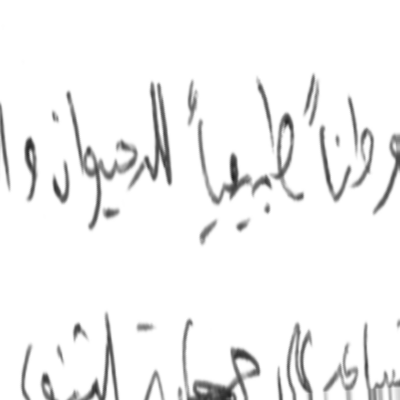 موطناً طبيعياً للحيوان وا
تساعد على حماية التنوع